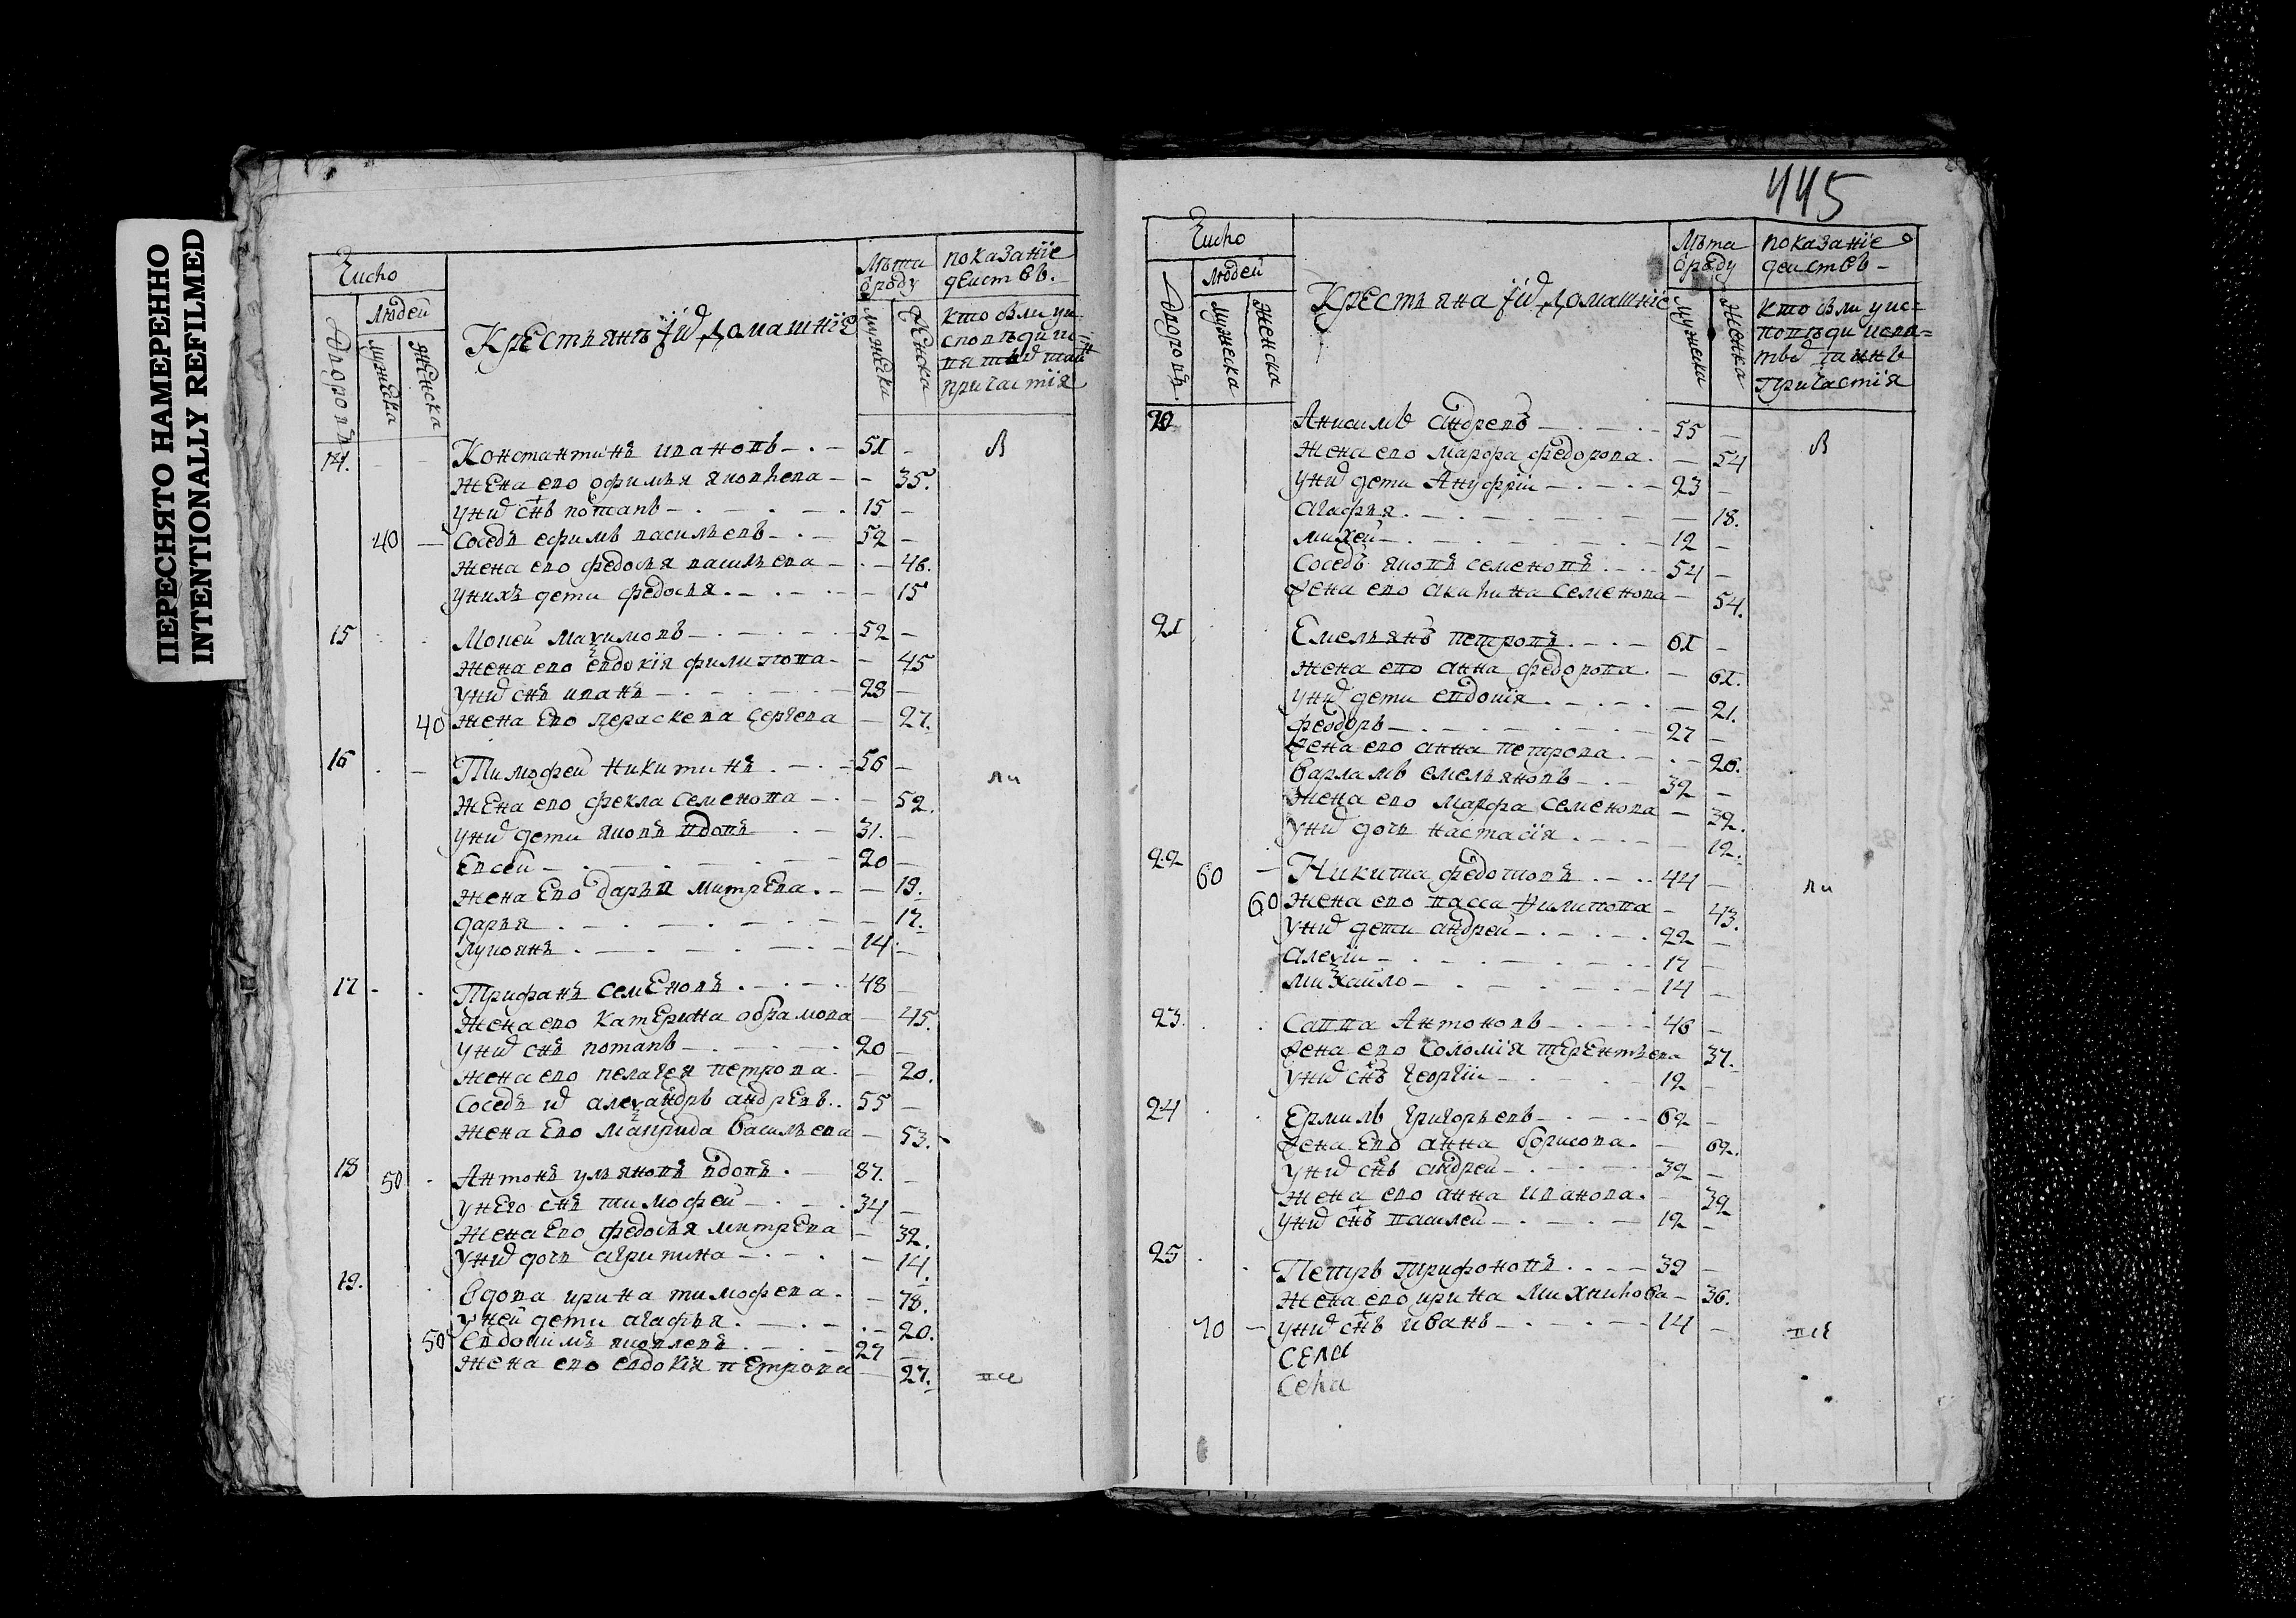 ПЕРЕСНЯТО НАМЕРЕННО
INTENTIONALLY REFILMED
445
Число
Людей
Дворовъ
мужеска
женска
Крестьянъ їхъ домашнїе
Лѣта
ѿ роду
мужеска
женска
показанїе
действъ.
кто былъ у ис
причастїя
14. Константинъ ивановъ 51
Жена ево офимья яковлева 35.
У нихъ снъ потапъ 15
40 Соседъ ефимъ васильевъ 52
Жена ево федосья васильева 46.
У нихъ дети федосья 15
15 Мокей маѯимовъ 52
Жена ево евдокїя филипова 45
У нихъ снъ иванъ 28
40 Жена ево Пераскева сергева 27.
16 Тимофей никитинъ 56
Жена ево фекла семенова 52.
У нихъ дети яковъ вдовъ 31.
Евсей 20
Жена ево дарья митрева 19.
дарья 17.
лукоянъ 14
17 Трифанъ семеновъ 48
Жена ево катерина обрамова 45.
У нихъ снъ потапъ 20
Жена ево пелагея петрова 20.
Соседъ ихъ алеѯандръ андревъ 55
Жена ево маврида васильева 53.
18 50 Антонъ ульяновъ вдовъ 87.
У него снъ тимофей 34
Жена ево федосья митрева 32.
У нихъ дочь агрипина 14.
19. Вдова ирина тимофева 78.
У ней дети агафья 20.
50 Евдокимъ яковлевъ 27
Жена ево евдокїя петрова 27.
Число
Людей
Дворовъ
мужеска
женска
Крестьяна їхъ домашнїе
Лѣта
ѿ роду
мужеска
женска
показанїе
действъ
кто былъ у ис=
поведи и свя=
причастїя
20 Анисимъ андревъ 55
Жена ево марфа федорова 54
У нихъ дети Ануфрїи 23
Агафья 18.
михей 12
Соседъ яковъ семеновъ 54
Жена ево акилина семенова 54.
21 Емельянъ петровъ 61
Жена ево анна федорова 61.
У нихъ дети евдокїя 21.
феодоръ 27
Жена ево анна петрова 26.
Варламъ емельяновъ 32
Жена ево марфа семенова 32.
У нихъ дочь настасїя 12.
22 60 Никита федотовъ 44
60 Жена ево васса филипова 43.
У нихъ дети андрей 22
Алеѯїи 17
Михайло 14
23. Савва Антоновъ 46
Жена ево соломїя терентьева 37.
У нихъ снъ георгїи 12
24 Ермилъ григорьевъ 62
Жена ево анна борисова 62.
У нихъ снъ андрей 32
Жена ево анна иванова 32
У нихъ снъ василей 12
25 Петръ трифоновъ 39
Жена ево ирина михаилова 36.
70 У нихъ снъ иванъ 14
села
села